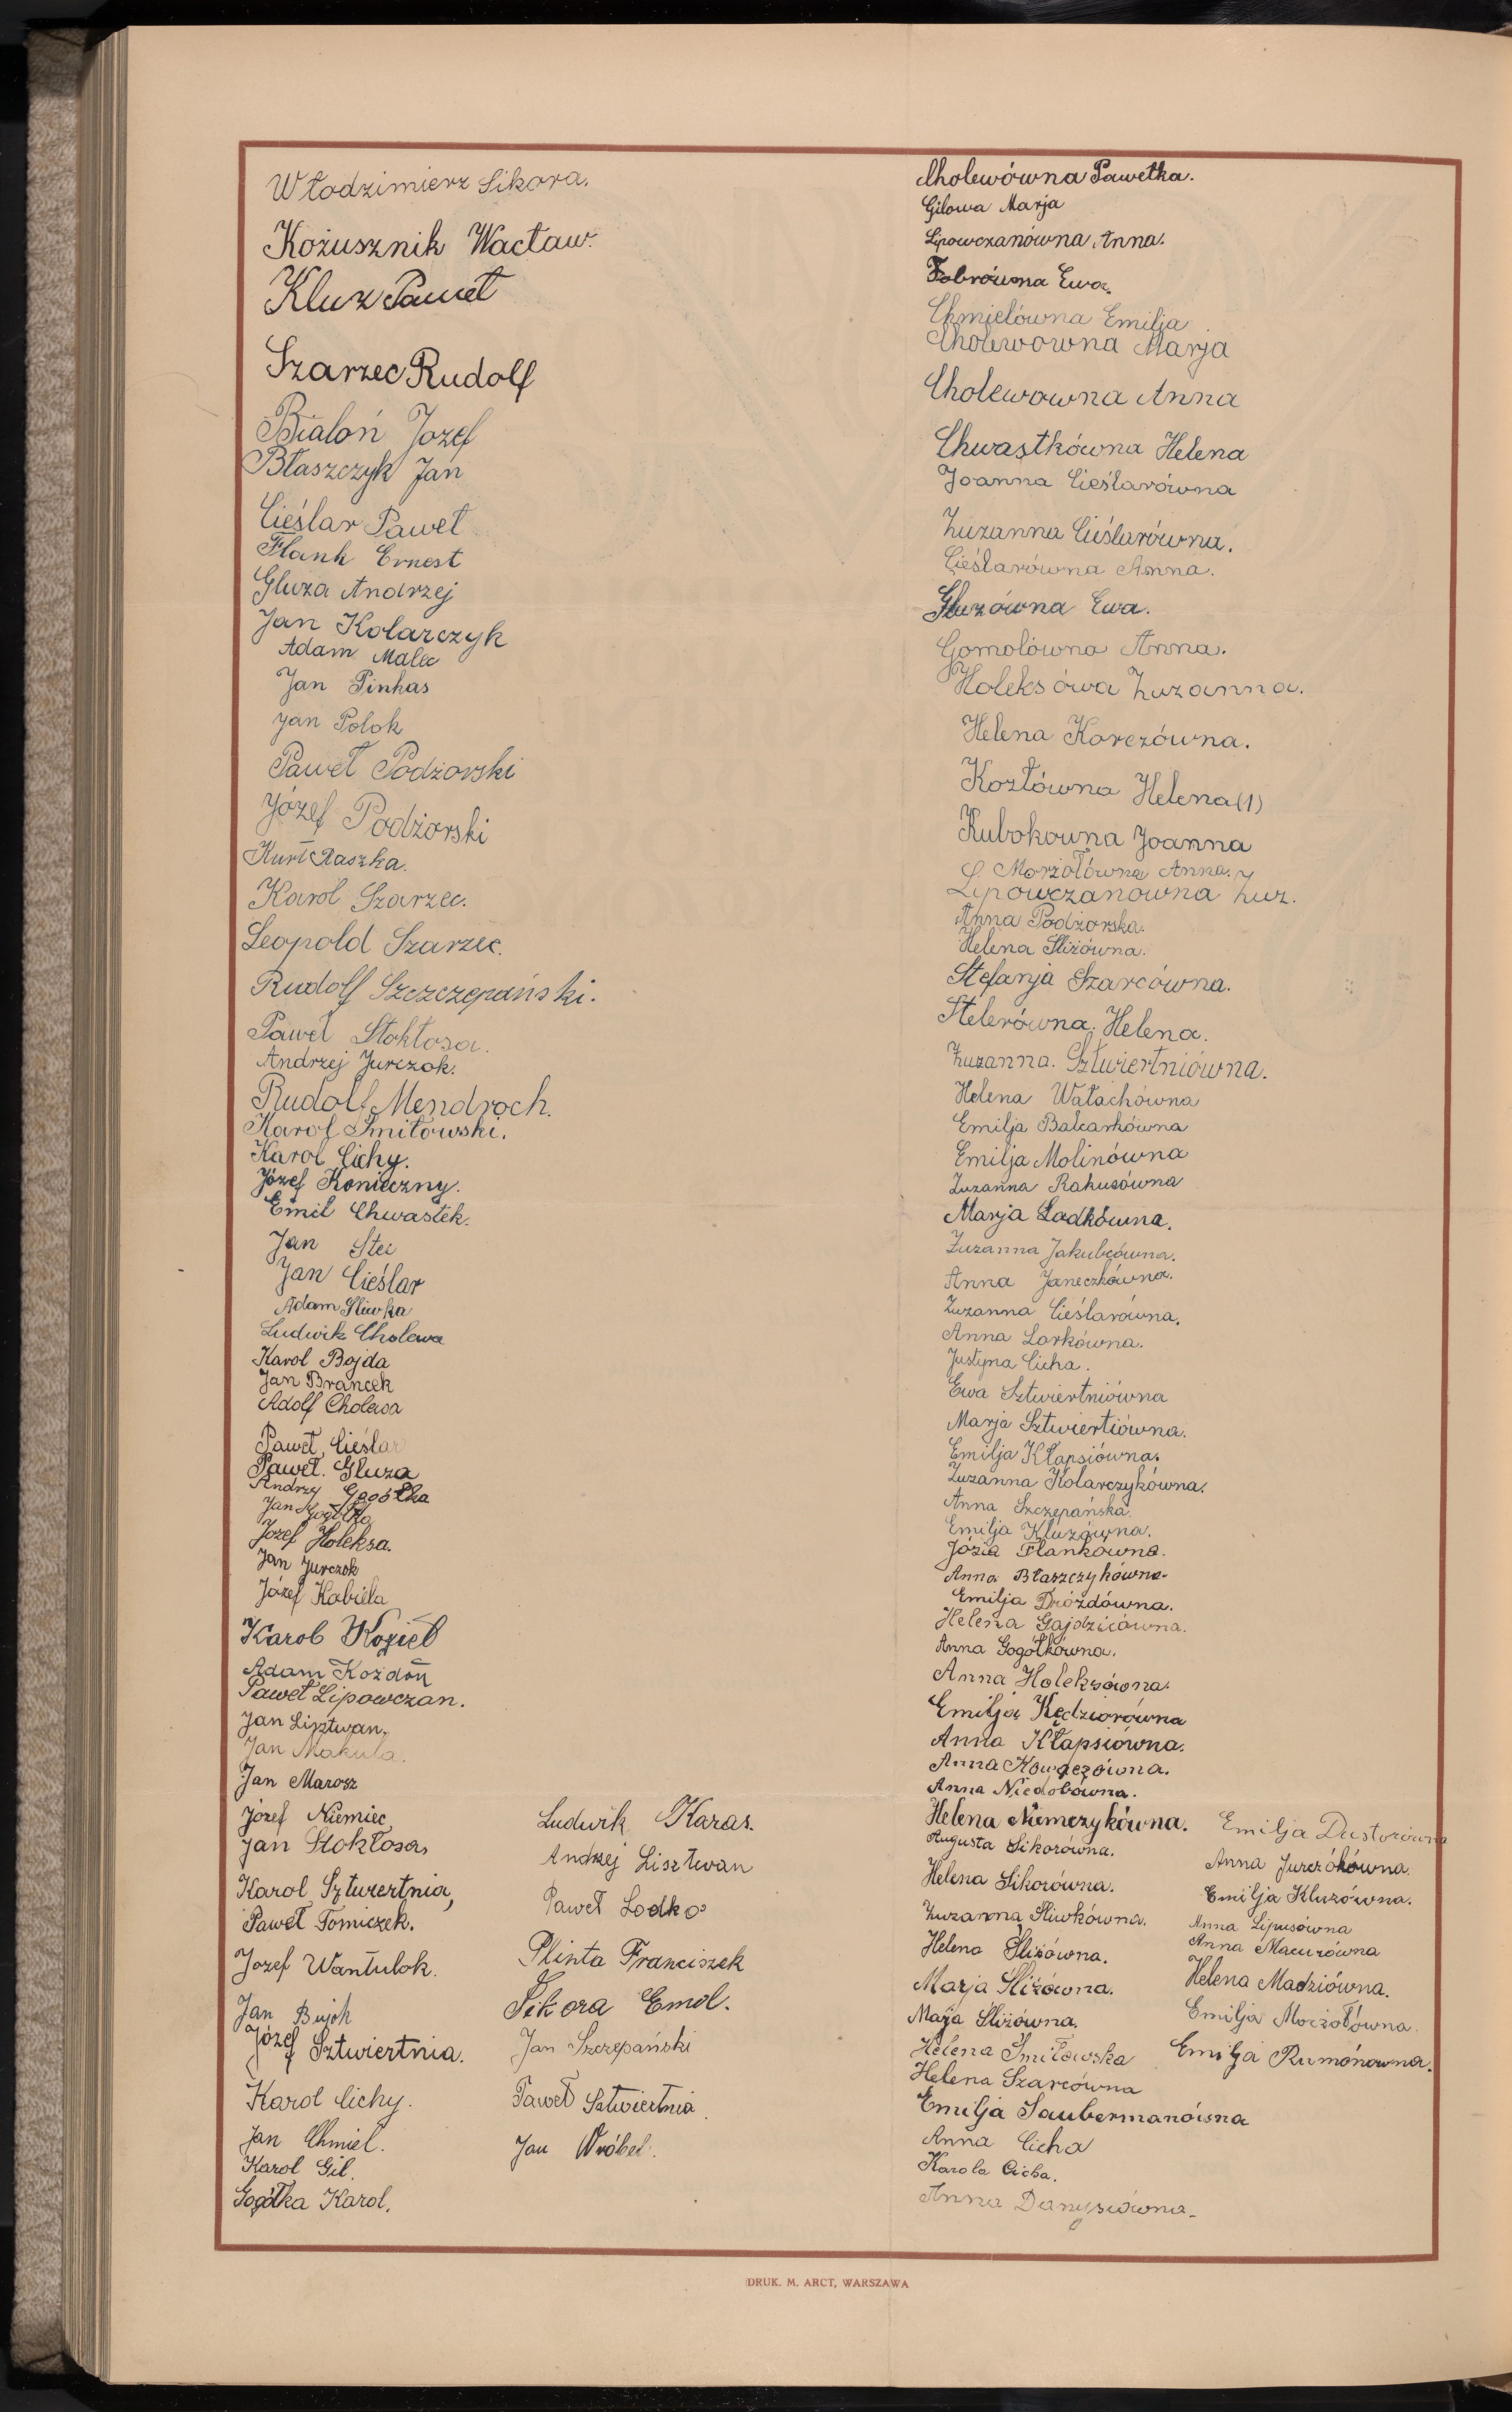 Włodzimierz Sikora.
Kożusznik Wacław.
Kluz Paweł
Szarzec Rudolf
Białoń Józef
Błaszczyk Jan
Cieślar Paweł
Flank Ernest
Gluza Andrzej
Jan Kolarczyk
Adam Malec
Jan Pinkas
Jan Polok
Paweł Podżorski
Józef Podżorski
Kurt Raszka.
Karol Szarzec.
Leopold Szarzec.
Rudolf Szczczepański.
Paweł Stokłosa.
Andrzej Jurczok.
Rudolf Mendroch.
Karol Śmiłowski.
Karol Cichy.
Józef Konieczny.
Emil Chwastek.
Jan Stec
Jan Cieślar
Adam Śliwka
Ludwik Cholewa
Karol Bojda
Jan Brancek
Adolf Cholewa
Paweł Cieślar
Paweł. Gluza
Andrzy Gogółka
Jan Gogółka
Józef Holeksa.
Jan Jurczok
Józef Kabiela
Karol Kozieł
Adam Kożdoń
Paweł Lipowczan.
Jan Lisztwan.
Jan Makula.
Jan Marosz
Józef Niemiec
Jan Stokłosa,
Karol Sztwiertnia,
Paweł Tomiczek.
Jozef Wantulok.
Jan Bujok
Józef Sztwiertnia.
Karol Cichy.
Jan Chmiel.
Karol Gil.
Gogółka Karol.
Ludwik Karas.
Andrzej Lisztwan
Paweł Lodko
Plinta Franciszek
Sikora Emol.
Jan Szczepański
Paweł Sztwiertnia.
Jan Wróbel.
Cholewówna Pawełka.
Gilowa Marja
Lipowczanówna Anna.
Fobrówna Ewa.
Chmielówna Emilja
Cholewówna Marja
Cholewowna Anna
Chwastkówna Helena
Joanna Cieślarówna
Zuzanna Cieślarówna.
Cieślarówna Anna.
Gluzówna Ewa.
Gomolówna Anna.
Holeksówa Zuzanna.
Helena Korczówna.
Kozłówna Helena (1)
Kubokowna Joanna
Morżołówna Anna.
Lipowczanówna Zuz.
Anna Podżorska.
Helena Śliżówna.
Stefanja Szarcówna.
Stelerówna. Helena.
Zuzanna. Sztwiertniówna.
Helena Wałachówna
Emilja Balcarkówna
Emilja Molinówna
Zuzanna Rakusówna
Marja Ladkówna.
Zuzanna Jakubcówna.
Anna Janeczkówna.
Zuzanna Cieślarówna.
Anna Larkówna.
Justyna Cicha.
Ewa Sztwiertniówna
Marja Sztwiertiówna.
Emilja Kłapsiówna.
Zuzanna Kolarczykówna.
Anna Szczepańska.
Emilja Kluzówna.
Józia Flankówna.
Anna Błaszczykówna.
Emilja Dróżdówna.
Helena Gajdzicówna.
Anna Gogółkówna.
Anna Holeksówna.
Emilja Kędziorówna
Anna Kłapsiówna.
Anna Niedobówna.
Helena Niemczykówna.
Augusta Sikorówna.
Helena Sikorówna.
Zuzanna Śliwkówna.
Helena Śliżówna.
Marja Śliżówna.
Marja Śliżówna.
Helena Śmiłowska
Helena Szarcówna
Emilja Taubermanówna
Anna Cicha
Karola Cicha.
Anna
Emilja
Anna Jurczókówna.
Emilja Kluzówna.
Anna Lipusówna
Anna Macurówna
Helena Madziówna.
Emilja Morżołówna.
Emilja Rumónowna.
DRUK. M. ARCT, WARSZAWA